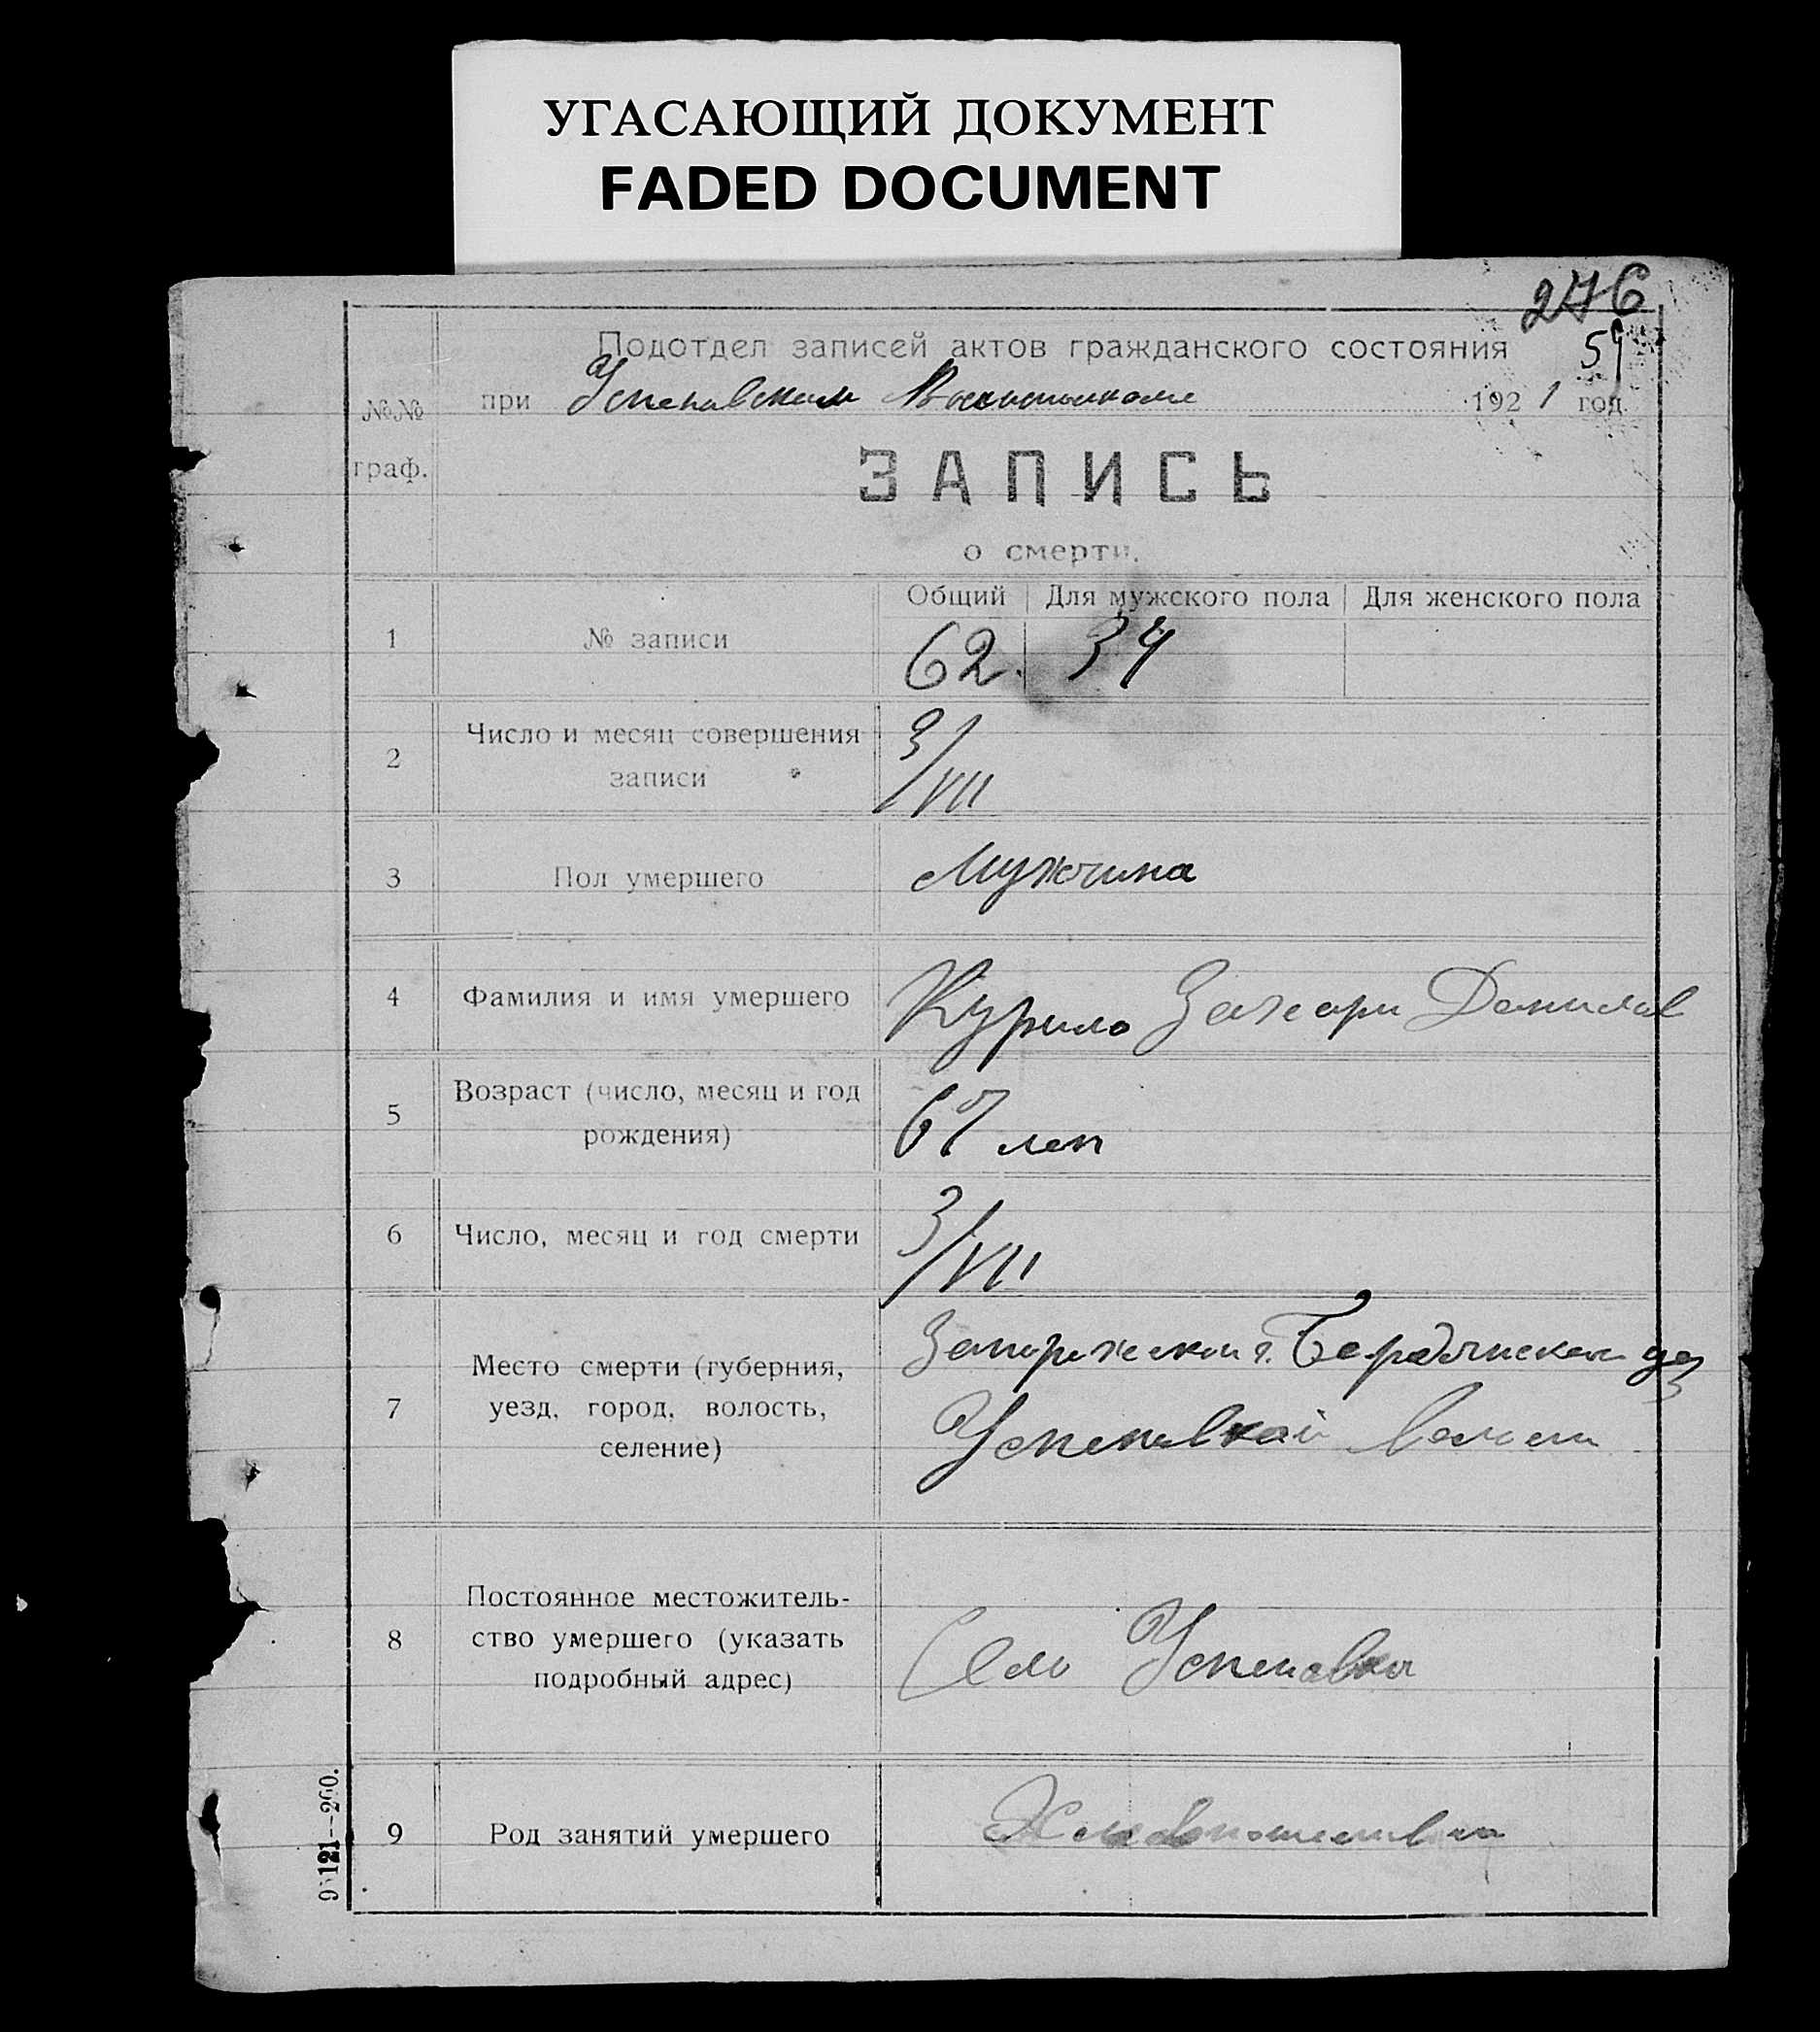 УГАСАЮЩИЙ ДОКУМЕНТ
FADED DOCUMENT
276
59
Подотдел записей актов гражданского состояния
№№ при Успеновском 1921 год
граф.
ЗАПИСЬ
о смерти.
Общий Для мужского пола Для женского пола
1 № записи 62. 34
2 Число и месяц совершения
записи 3/VII
3 Пол умершего Мужчина
4 Фамилия и имя умершего Курило Захари Данилов
5 Возраст (число, месяц и год
рождения) 67 лет
6 Число, месяц и год смерти 3/VII
7 Место смерти (губерния,
уезд, город, волость,
селение)
Запорожской г. Бердянского уез
Успеновкой волости
8 Постоянное местожитель-
ство умершего (указать
подробный адрес)
Село Успеновка
9 Род занятий умершего